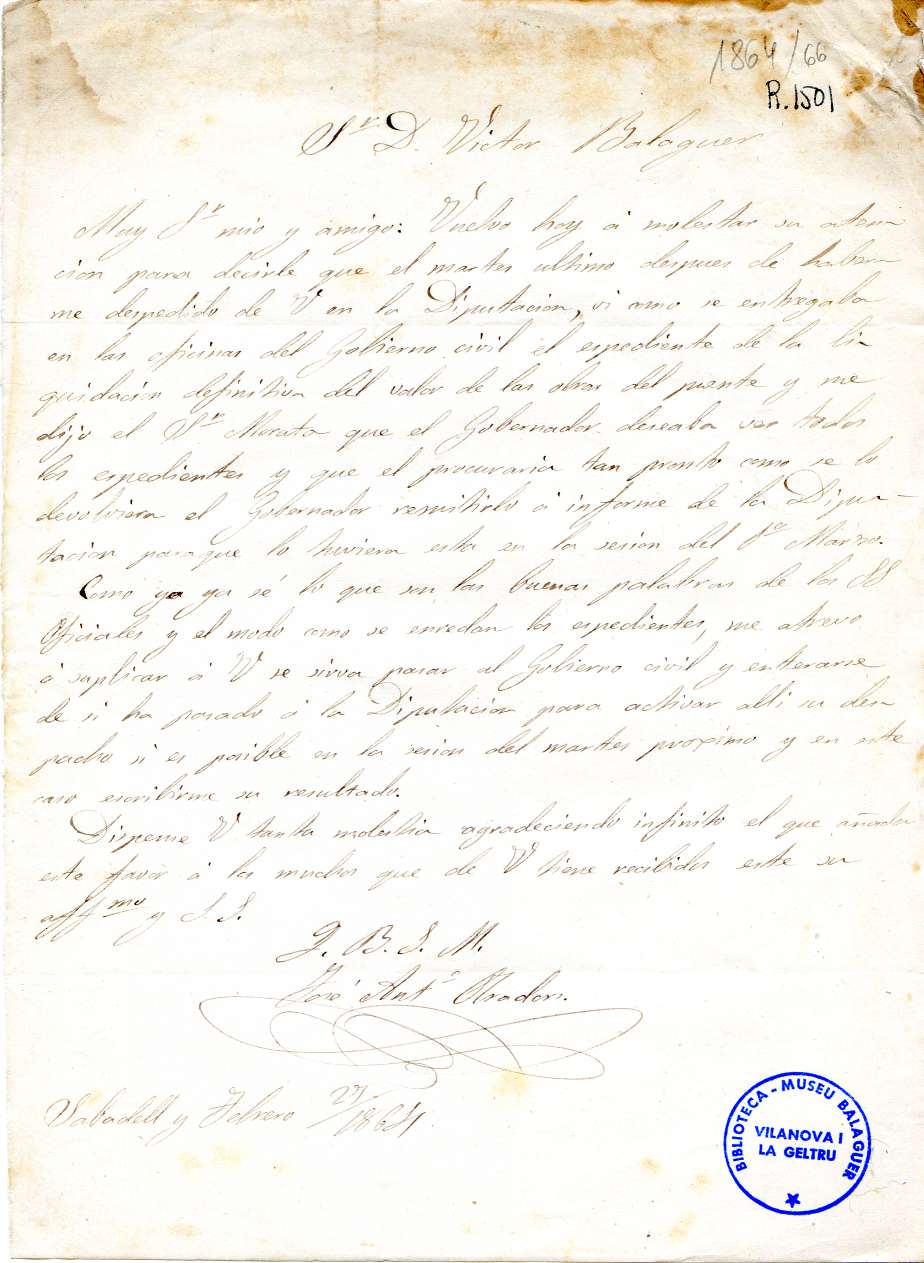 1864/66
R.1501
Sr D. Victor Balaguer
Muy Sr mio y amigo: Vuelvo hoy á molestar su aten
cion para decirle que el martes ultimo despues de haber
me despedido de V en la Diputacion, vi como se entregaba
en las oficinas del Gobierno civil el espediente de la li-
quidacion definitiva del valor de las obras del puente y me
dijo el Sr Morata que el Gobernador deseaba ver todos
los espedientes y que el procuraria tan pronto como se lo
devolviera el Gobernador remitirlo á informe de la Dipu-
tacion paraque lo tuviera esta en la sesion del 1o Marzo.
Como ya ya sé lo que son las buenas palabras de los SS
Oficiales y el modo como se enredan los espedientes, me atrevo
á suplicar á V se sirva pasar al Gobierno civil y enterarse
de si ha pasado á la Diputacion para activar alli su des
pacho si es posible en la sesion del martes proximo y en este
caso escribirme su resultado.
Dispense V tanta molestia agradeciendo infinito el que añada
este favor á los muchos que de V tiene recibidos este su
affmo y S.S.
Q. B. S. M.
José Anto Obradors.
Sabadell y Febrero 27/1864
BIBLIOTECA-MUSEU BALAGUER
VILANOVA I
LA GELTRU